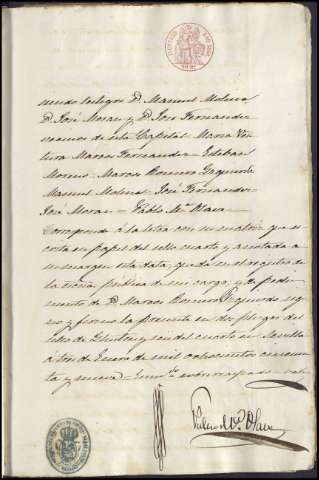 siendo testigos D. Manuel Molina
D. José Moran y D. José Fernandez
vecinos de esta Capital. Maria Ven
tura Marcos Fernandez = Esteban
Moreno = Marcos Romero Yzquierdo
Manuel Molina = José Fernandez =
José Moran = Pablo Mª Olave
Corresponde á la letra con su matriz que es
crita en papel del sello cuarto y anotada a
su margen esta data, queda en el registro de
la escria publica de mi cargo, y de pedi
mento de D. Marcos Romero Yzquierdo sig
no y firmo la presente en dos pliegos del
sello de Ilustres y seis del cuarto en Sevilla
á tres de Enero de mil ochocientos cincuen
ta y nueve = Enmdo
Pablo Mª Olave